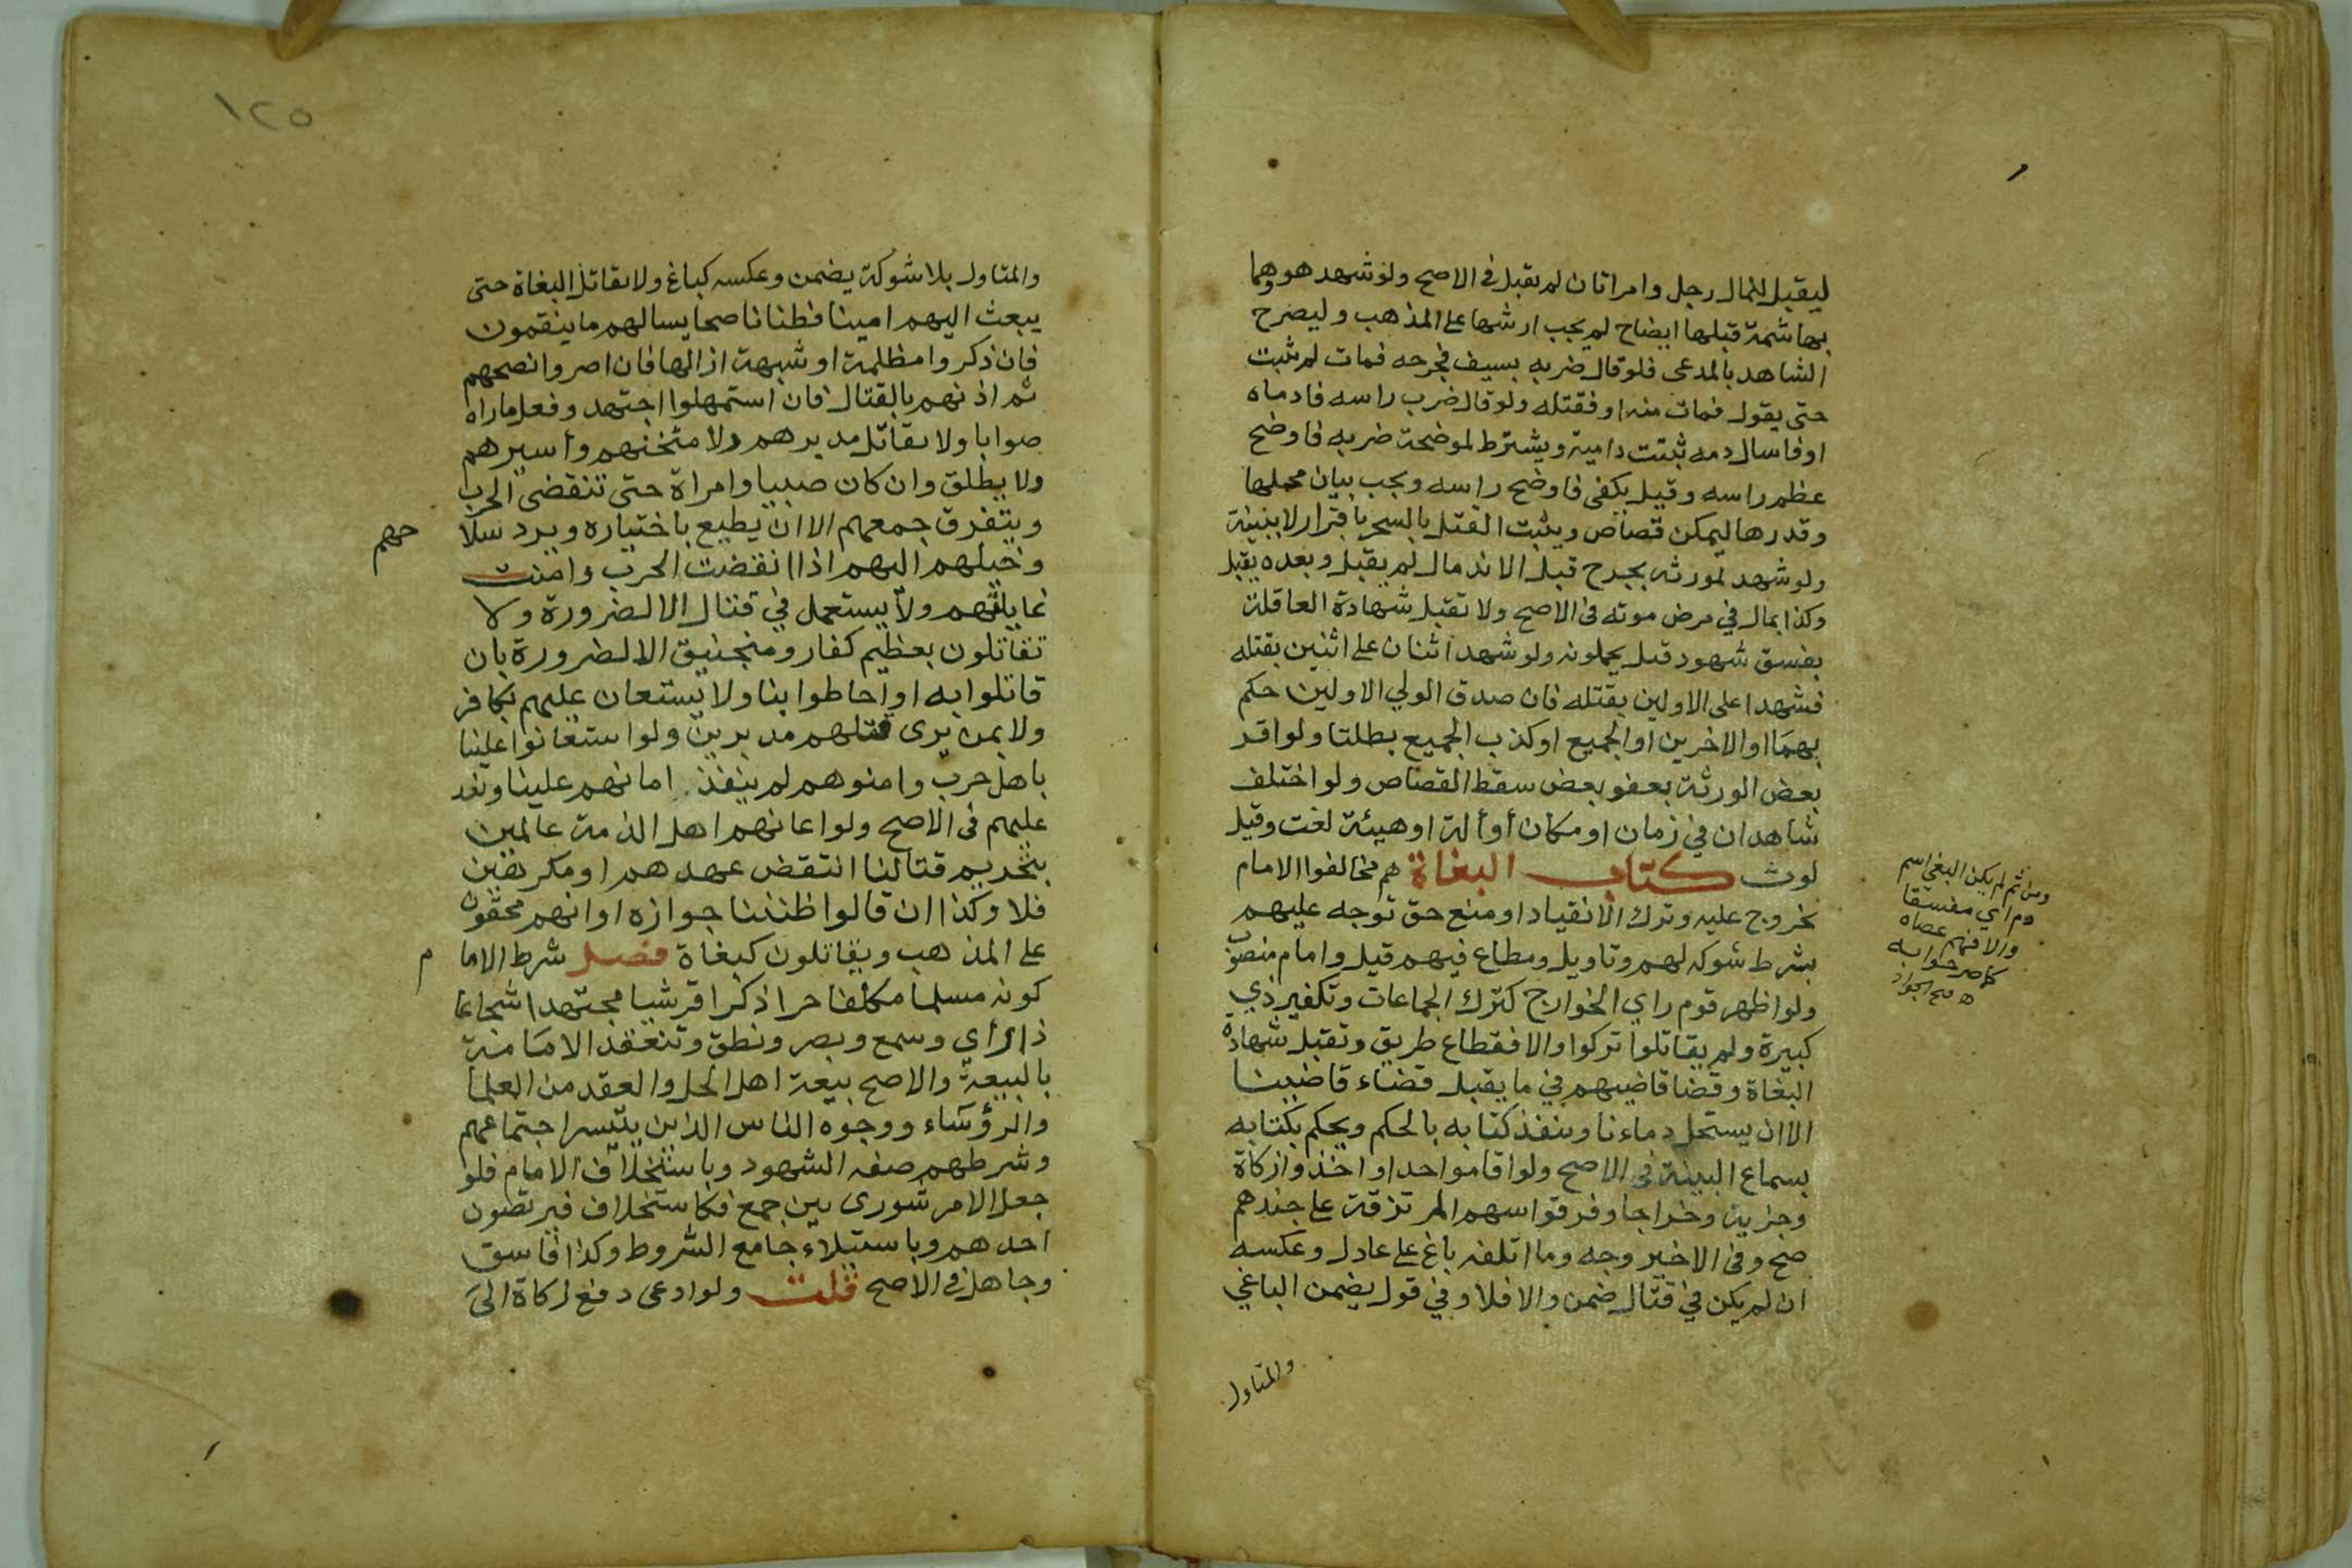 ليقبل للمال رجل وامراتان لم تقبل في الاصح ولو شهد هو وهما
بهاشمة قبلها ايضاح لم يجب ارشها على المذهب وليصرح
الشاهد بالمدعى فلو قال ضربه بسيف فجرحه فمات لم يثبت
حتى يقول فمات منه او فقتله ولو قال ضرب راسه فادماه
او فاسال دمه ثبتت دامية ويشترط لموضحة ضربه فاوضح
عظم راسه وقيل يكفي فاوضح راسه ويجب بيان محلها
وقدرها ليمكن قصاص ويثبت القتل بالسحر باقرار لا ببينة
ولو شهد لمورثه بجرح قبل الاندمال لم يقبل وبعده يقبل
وكذا بمال في مرض موته في الاصح ولا تقبل شهادة العاقلة
بفسق شهود قتل يحملونه ولو شهد اثنان على اثنين بقتله
فشهدا على الاولين بقتله فان صدق الولي الاولين حكم
بهما او الاخرين او الجميع او كذب الجميع بطلتا ولو اقر
بعض الورثة بعفو بعض سقط القصاص ولو اختلف
شاهدان في زمان او مكان أو ألة او هيئة لغت وقيل
لوث كتاب البغاة هم مخالفوا الامام
بخروج عليه وترك الانقياد او منع حق توجه عليهم
بشرط شوكه لهم وتاويل ومطاع فيهم قيل وامام منصوب
ولو اظهر قوم راي الخوارج كترك الجماعات وتكفير ذي
كبيرة ولم يقاتلوا تركوا والا فقطاع طريق وتقبل شهادة
البغاة وقضا قاضيهم في ما يقبل قضاء قاضينا
الا ان يستحل دماءنا وينفذ كتابه بالحكم ويحكم بكتابه
بسماع البينة في الاصح ولو اقاموا حدا او اخذوا زكاة
وجزية وخراجا وفرقوا سهم المرتزقة على جندهم
صح وفي الاخير وجه وما اتلفه باغ على عادل وعكسه
ان لم يكن في قتال ضمن والا فلا وفي قول يضمن الباغي
والمتاول
ومن ثم لم يكن البغي اسم
ذم اي مفسقا
والا فهم عصاه
والمتاول بلا شوكة يضمن وعكسه كباغ ولا يقاتل البغاة حتى
يبعث اليهم امينا فطنا ناصحا يسالهم ما ينقمون
فان ذكروا مظلمة او شبهة ازالها فان اصروا نصحهم
ثم اذنهم بالقتال فان استمهلوا اجتهد وفعل ما راه
صوابا ولا يقاتل مدبرهم ولا مثخنهم وأسيرهم
ولا يطلق وان كان صبيا وامراة حتى تنقضي الحرب
ويتفرق جمعهم الا ان يطيع باختياره ويرد سلا
حهم
وخيلهم اليهم اذا انقضت الحرب وامنت
غايلتهم ولا يستعمل في قتال الا لضرورة ولا
تقاتلون بعظيم كفار ومنجنيق الا لضرورة بان
قاتلوا به او احاطوا بنا ولا يستعان عليهم بكافر
ولا بمن يرى قتلهم مدبرين ولو استعانوا علينا
باهل حرب وامنوهم لم ينفذ امانهم علينا ونفذ
عليهم في الاصح ولو اعانهم اهل الذمة عالمين
بتحريم قتالنا انتقض عهدهم او مكرهين
فلا وكذا ان قالوا ظننا جوازه او انهم محقون
على المذهب ويقاتلون كبغاة فصل شرط الاما
م
كونه مسلما مكلفا حرا ذكرا قرشيا مجتهدا شجاعا
ذا رأي وسمع وبصر ونطق وتنعقد الامامة
بالبيعة والاصح بيعة اهل الحل والعقد من العلما
والرؤساء ووجوه الناس الذين يتيسر اجتماعهم
وشرطهم صفه الشهود وباستخلاف الامام فلو
جعل الامر شورى بين جمع فكاستخلاف فيرتضون
احدهم وباستيلاء جامع الشروط وكذا فاسق
وجاهل في الاصح قلت ولو ادعى دفع زكاة الى
١٢٥